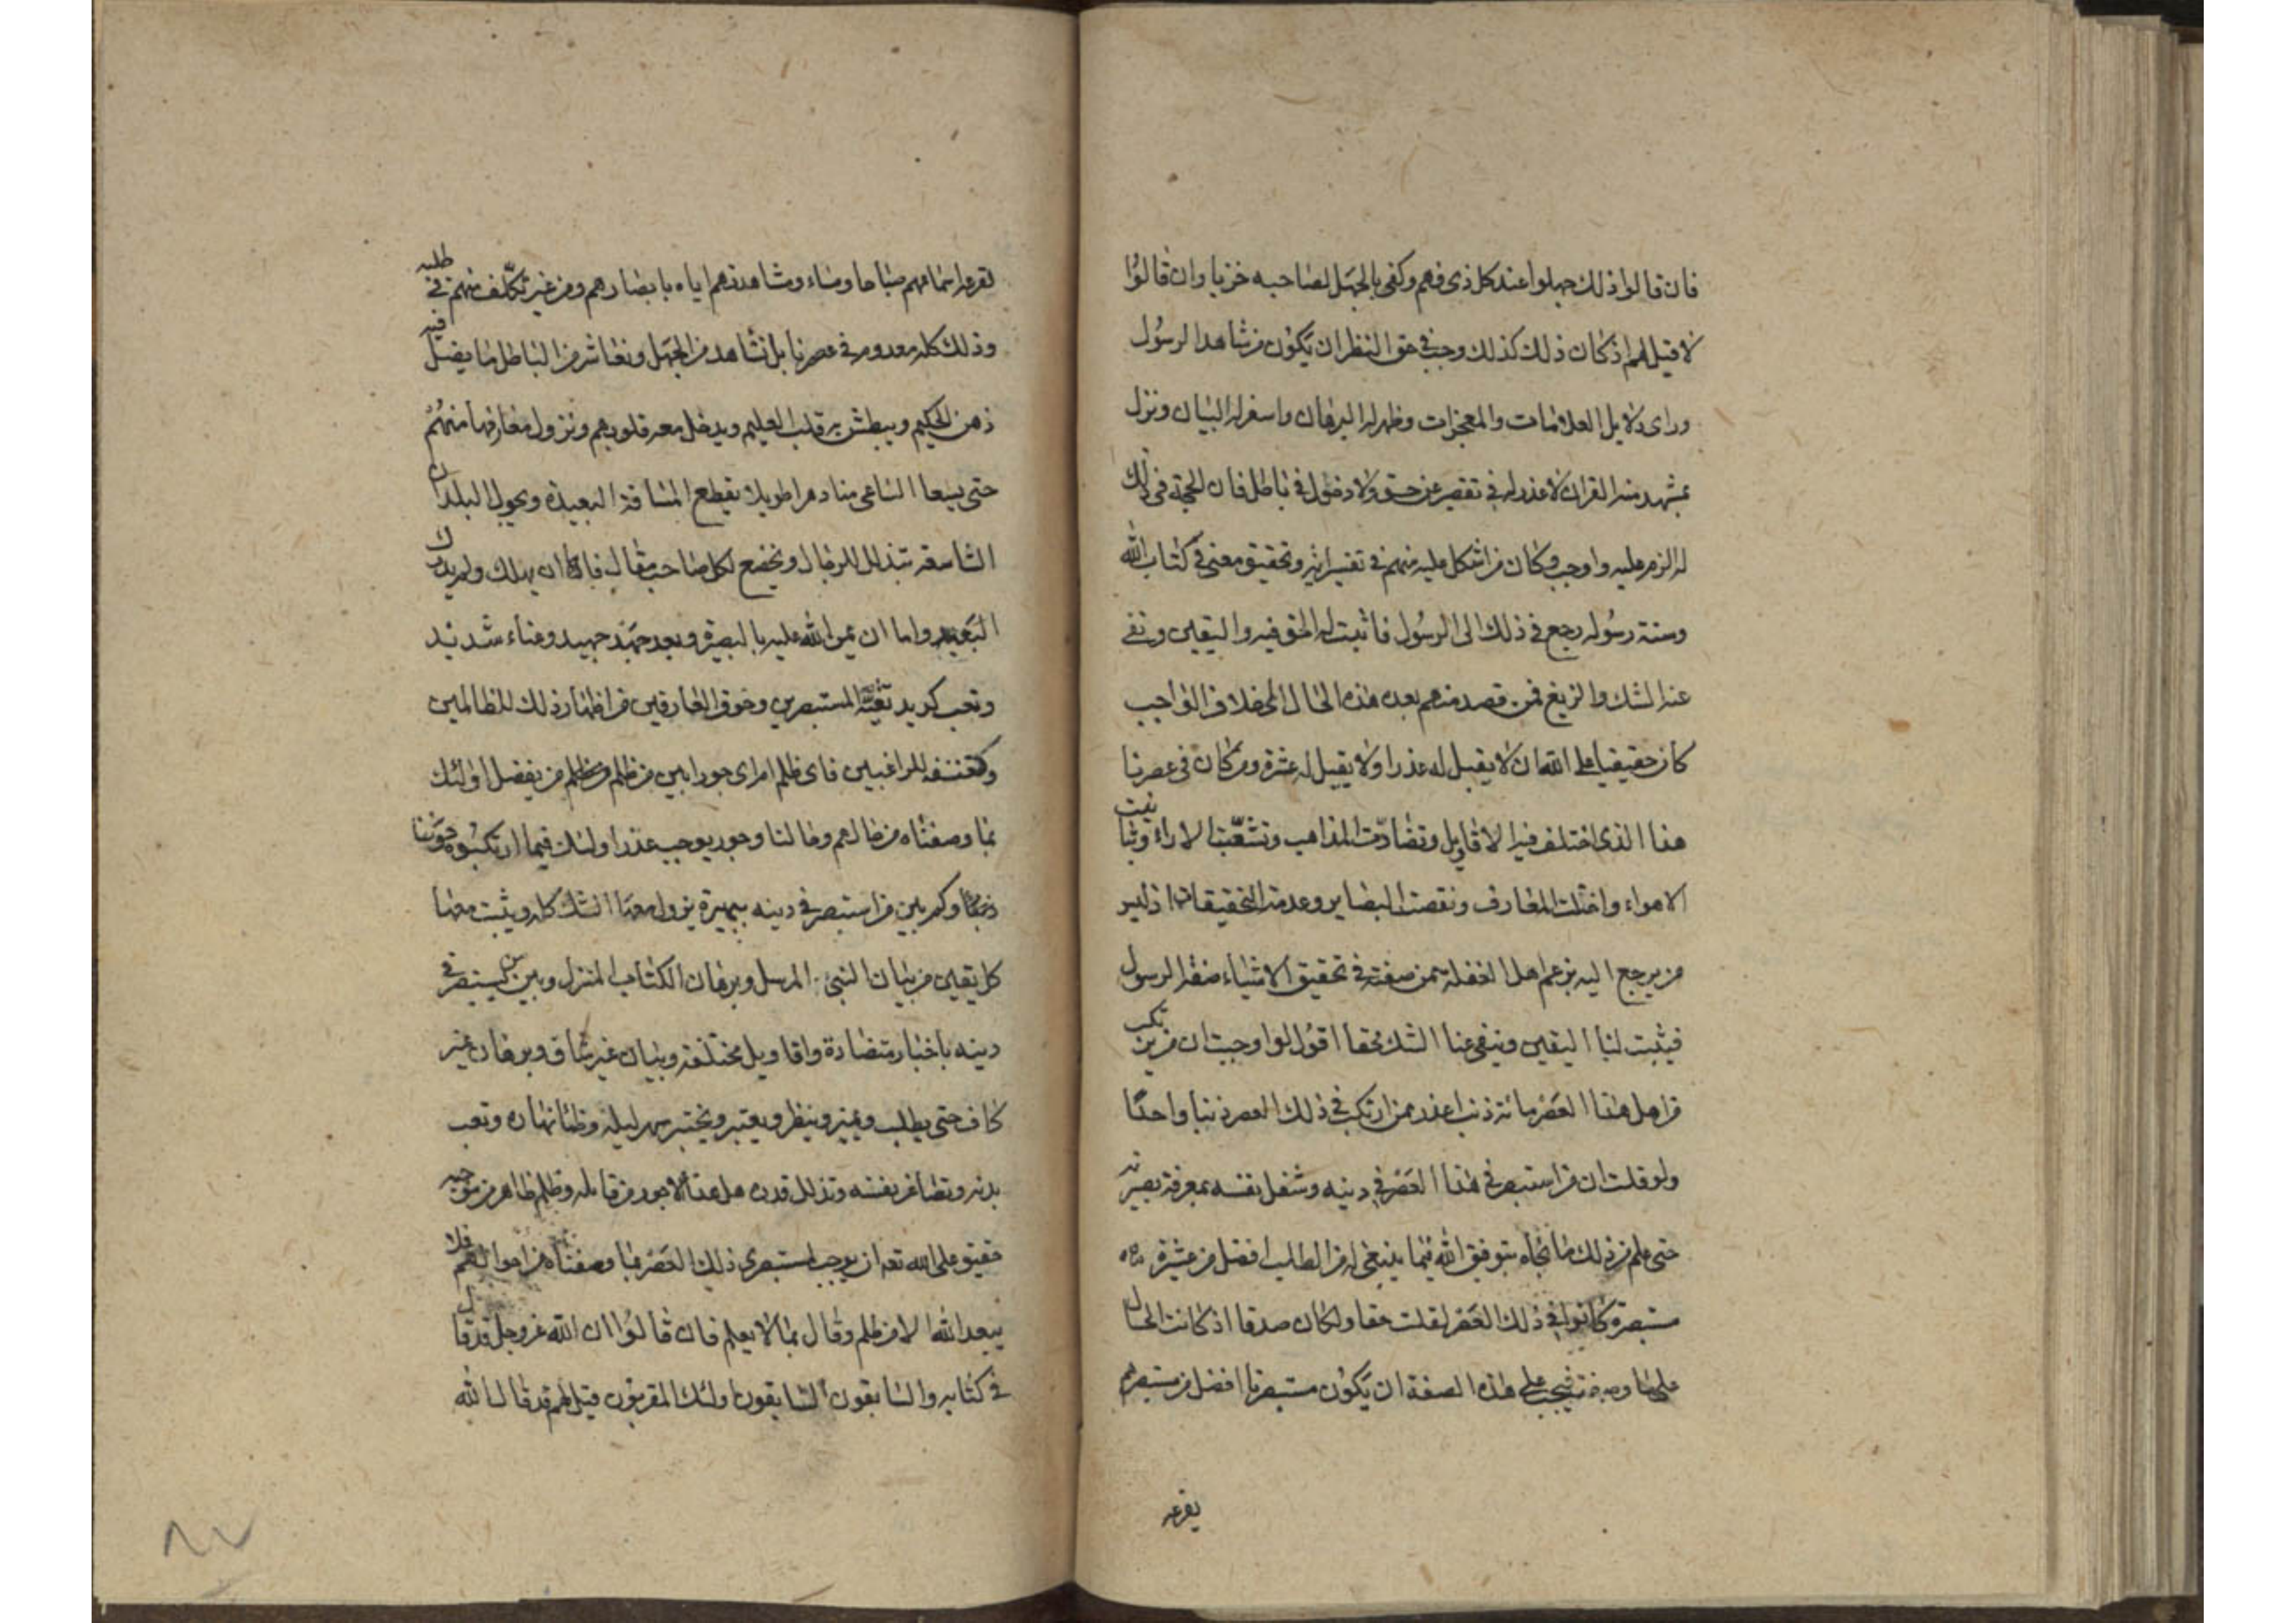 فان قالوا ذلك جهلوا عند كل ذى فهم وكفى بالجهل لصاحبه خزيا وان قالوا
لا قيل لهم اذ كان ذلك كذلك وجب فى حق النظر ان يكون من شاهد الرسول
وراى دلايل العلامات والمعجزات وظهر له البرهان واسفر له البيان ونزل
بمشهد منه القران لا عذر له فى تقصير عن حق ولا دخول فى باطل فان الحجة فى ذلك
له الزم وعليه واوجب وكان من اشكل عليه منهم فى تفسير اية وتحقيق معنى فى كتاب الله
وسنة رسوله رجع فى ذلك الى الرسول فاثبت له الحق فيه واليقين ونفى
عنه الشك والزيغ فمن قصد منهم بعد هذه الحال الى خلاف الواجب
كان حقيقيا على الله ان لا يقبل له عذرا ولا يقيل له عثرة ومن كان فى عصرنا
هذا الذى اختلف فيه الاقاويل وتضادّت المذاهب وتشعّبت الاراء وتباينت
الاهواء واختلت المعارف ونقصت البصاير وعدمت التحقيقات اذ ليس
من يرجع اليه بزعم اهل الغفلة ممن صفته فى تحقيق الاشياء صفة الرسول
فيثبت لنا اليقين وينفى عنا الشك محقا اقول لو اوجبت ان مرتكب
من اهل هذا العصر مائة ذنب اعذر ممن ارتكب فى ذلك العصر ذنبا واحدًا
ولو قلت ان من استبصر فى هذا العصر فى دينه وشغل نفسه بمعرفة بصيرته
حتى علم من ذلك ما نجاه بتوفيق الله فيما ينبغى له من الطلب افضل من عشرة
مستبصرة كانوا فى ذلك العصر لقلت حقا ولكان صدقا اذ كانت الحال
على ما وصفته فيجب على هذه الصفة ان يكون مستبصرنا افضل من مستبصرهم
يقرعه
لقرعه اسماعهم صباحا ومساء ومشاهدتهم اياه بابصارهم ومن غير تكلّف منهم فى طلبه
وذلك كله معدوم فى عصرنا بل نشاهد من الجهل ونعاشر من الباطل ما يضل فيه
ذهن الحكيم ويبطش به قلب العليم ويدخل معه قلوبهم وتزول معارفها منهم
حتى يسعا الساعى منا دهرا طويلا يقطع المسافة البعيدة ويجول البلدان
الشاسعة يتذلل للرجال ويخضع لكل صاحب مقال فاما ان يهلك ولم يدرك
البغية واما ان يمن الله عليه بالبصيرة وبعد جهد جهيد وعناء شديد
وتعب كديد تقية المستبصرين وخوف العارفين من اظهار ذلك للظالمين
وكشفه للراغبين فاى ظلم ام اى جور ابين من ظلم من يفضل اولئك
بما وصفناه من حالهم وحالنا وجور يوجب عذر اولئك فيما ارتكبوه
وكم بين من استبصر فى دينه ببصيرة يزول معها الشك كله ويثبت معها
كل يقين من بيان النبى المرسل وبرهان الكتاب المنزل وبين من يستبصر فى
دينه باخبار متضادة واقاويل مختلفة وبيان غير شاف وبرهان غير
كاف حتى يطلب ويميز وينظر ويعتبر ويختبر بسهر ليله وظمأ نهاره وتعب
بدنه وتصاغر نفسه وتذلل قدره هل هذا الا جور من قائله وظلم ظاهر من موجبه
حقيق على الله تعه ان يوجب لمستبصرى ذلك العصر بما وصفناه من احوالهم فلا
يبعد الله الا من ظلم وقال بما لا يعلم فان قالوا ان الله عز وجل قد قال
فى كتابه والسابقون السابقون اولئك المقربون قيل لهم قد قال الله